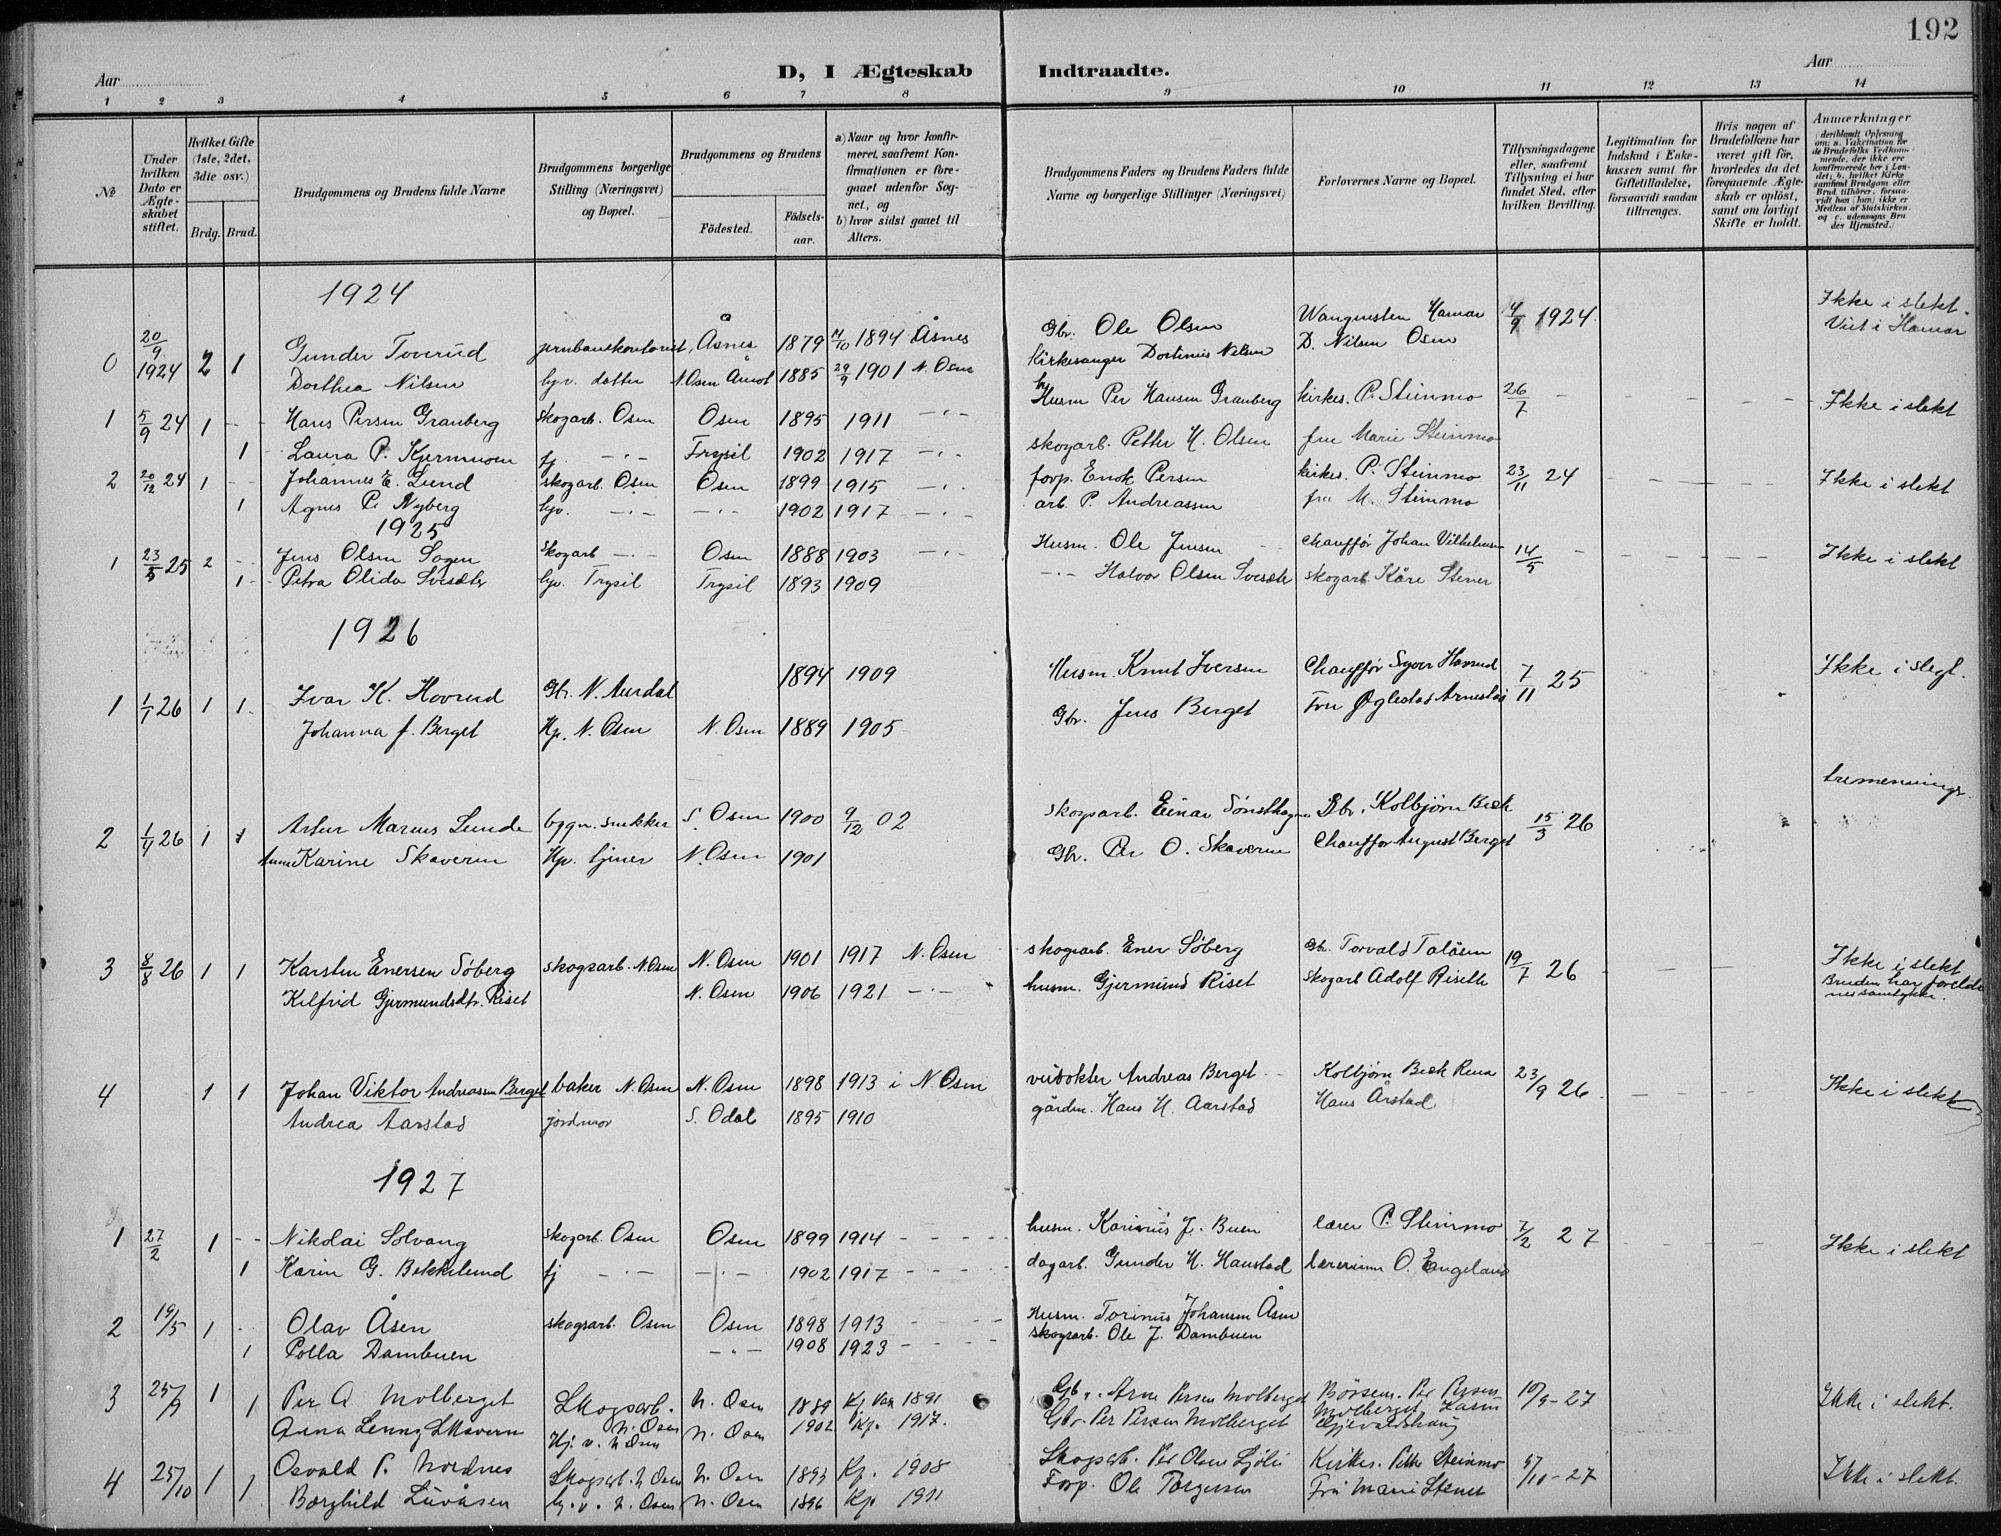 192
Aar
D, I Ægteskab
Indtraadte.
Aar
1 2 3 4 5 6 7 8 9 10 11 12 13 14
No
Under hvilken Dato er Ægteskabet stiftet.
Hvilket Gifte (1ste, 2det, 3die osv.)
Brdg. Brud.
Brudgommens og Brudens fulde Navne
Brudgommens borgerlige Stilling (Næringsvei) og Bopæl.
Brudgommens og Brudens
Födested.
Födsels-aar.
a) Naar og hvor konfirmeret, saafremt Konfirmationen er foregaaet udenfor Sognet, og
b) hvor sidst gaaet til Alters.
Brudgommens Faders og Brudens Faders fulde Navne og borgerlige Stillinger (Næringsvei)
Forlovernes Navne og Bopæl.
Tillysningsdagene eller, saafremt Tillysning ei har fundet Sted, efter hvilken Bevilling.
Legitimation for Indskud i Enkekassen samt for Giftetilladelse, forsaavidt saadan tiltrænges.
Hvis nogen af Brudefolkene har været gift för, hvorledes da det foregaaende Ægteskab er oplöst, samt om lovligt Skifte er holdt.
Anmærkninger (deriblandt Oplysning om: a. Vakcination for de Brudefolks Vedkommende, der ikke ere konfirmerede her i Landet; b. hvilket Kirkesamfund Brudgom eller Brud tilhörer, forsaavidt han (hun) ikke er Medlem af Statskirken. og c. udensogns Brudes Hjemsted.)
1924
0 20/9 1924 2 1 Gunder Toverud jernbanekontorist, Åsnes 1879 1894 Åsnes Gbr. Ole Olsen Hamar 4/9 1924 Ikke i slekt.
Dorthea Nilsen hjv. datter N. Osen Åmot 1885 29/9 1901 N. Osen Kirkesanger Dortinus Nilsen D. Nilsen Osen Viet i Hamar
1 5/9 24 1 - - Hans Persen Granberg skogarb. Osen Osen 1895 1911 - " - Husm Per Hansen Granberg kirkes. P. Steinmo 26/7 Ikke i slekt
1 Laura P. Kjernmoen hj - " - Trysil 1902 1917 - " - skogarb. Petter H. Olsen fru Marie Steinmo
2 20/12 24 1 - - Johannes E. Lund skogarb. Osen Osen 1899 1915 - " - forp. Enok Persen kirkes. P. Steinmo 23/11 24 Ikke i slekt
1 Agnes P. Nyberg hjv. - " - - " - 1902 1917 - " - arb. P. Andreassen fru M. Steinmo
1925
1 23/5 25 2 - - Jens Olsen Sogen Skogarb - " - Osen 1888 1903 - " - Husm. Ole Jensen chauffør Johan Vilhelmsen 14/5 Ikke i slekt
1 - Petra Olida Svesæter hjv. Trysil Trysil 1893 1909 - " - Halvor Olsen Svesæter skogarb Kåre Stener
1926
1 1/1 26 1 1 Ivar K. Hovrud Gbr. N. Aurdal 1894 1909 Husm. Knut Iversen Chauffør Syver Hovrud 7/11 25 Ikke i slegt.
Johanna J. Berget Hp. N. Osen N. Osen 1889 1905 Gbr. Jens Berget Fru Arnestad
tremenninger.
2 1/4 26 1 1 Artur Marius Lunde bygn. snekker S. Osen 1900 9/12 02 skogsarb. Einar Gbr. Kolbjørn Bæk 15/3 26
Karine Skaveren Hp. tjener N. Osen 1901 Gbr. Per O. Skaveren Chauffør August Berget
3 8/8 26 1 1 Karsten Enersen Søberg skogsarb. N. Osen N. Osen 1901 1917 N. Osen skogsarb. Ener Søberg Gbr. Torvald Taläsen 19/7 26 Ikke i slekt
Kilfrid Gjermundsdtr. Riset N. Osen 1906 1921 - " - husm. Gjermund Riset skogarb Adolf Riseth Bruden har foreldrenes samtykke.
4 1 1 Johan Viktor Andreassen Berget baker N. Osen N. Osen 1898 1913 i N Osen Andreas Berget Kolbjørn Bæk Rena 23/9 26 Ikke i slekt
Andrea Aarstad jordmor S. Odal 1895 1910 gårdm. Hans H. Aarstad Hans Årstad
1927
1 27/2 1 - - Nikolai Solvang skogarb. Osen Osen 1899 1914 - - - - husm. Karinus J. Buen lærer P. Steinmo 7/2 27 Ikke i slekt
1 Karin G. Bekkelund hj - " - - " - 1902 1917 - - - - dagarb. Gunder H. Haustad lærerinne O. Engeland
2 19/5 1 - - Olav Åsen skogsarb. Osen Osen 1898 1913 - - - - Husm. Torinus Johansen Åsen
1 Polla Dambuen - " - 1908 1923 - - - skogsarb. Ole J. Dambuen
3 25/9 1 Per A Molberget Skogsarb. N. Osen N. Osen 1889 1891 Gbr. Arne Persen Molberget Per Persen Molberget 10/9 - 27 Ikke i slekt.
1 Anna Lenny Skavern Hj. v. N Osen N. Osen 1902 Kp. 1917. Gbr Per Persen Molberget Karin
4 25/10 1 Osvald P. Nordnes Skogsarb. N Osen N. Osen 1893 Kp. 1908 Skogsarb. Per Olsen Sjøli Kirkes. Petter Steinmo 5/10 - 27 Ikke i slekt.
1 Borghild Luvåsen hj. v. N. Osen N. Osen 1896 Kp 1911 Forp. Ole Torgersen Fru Marie Stener